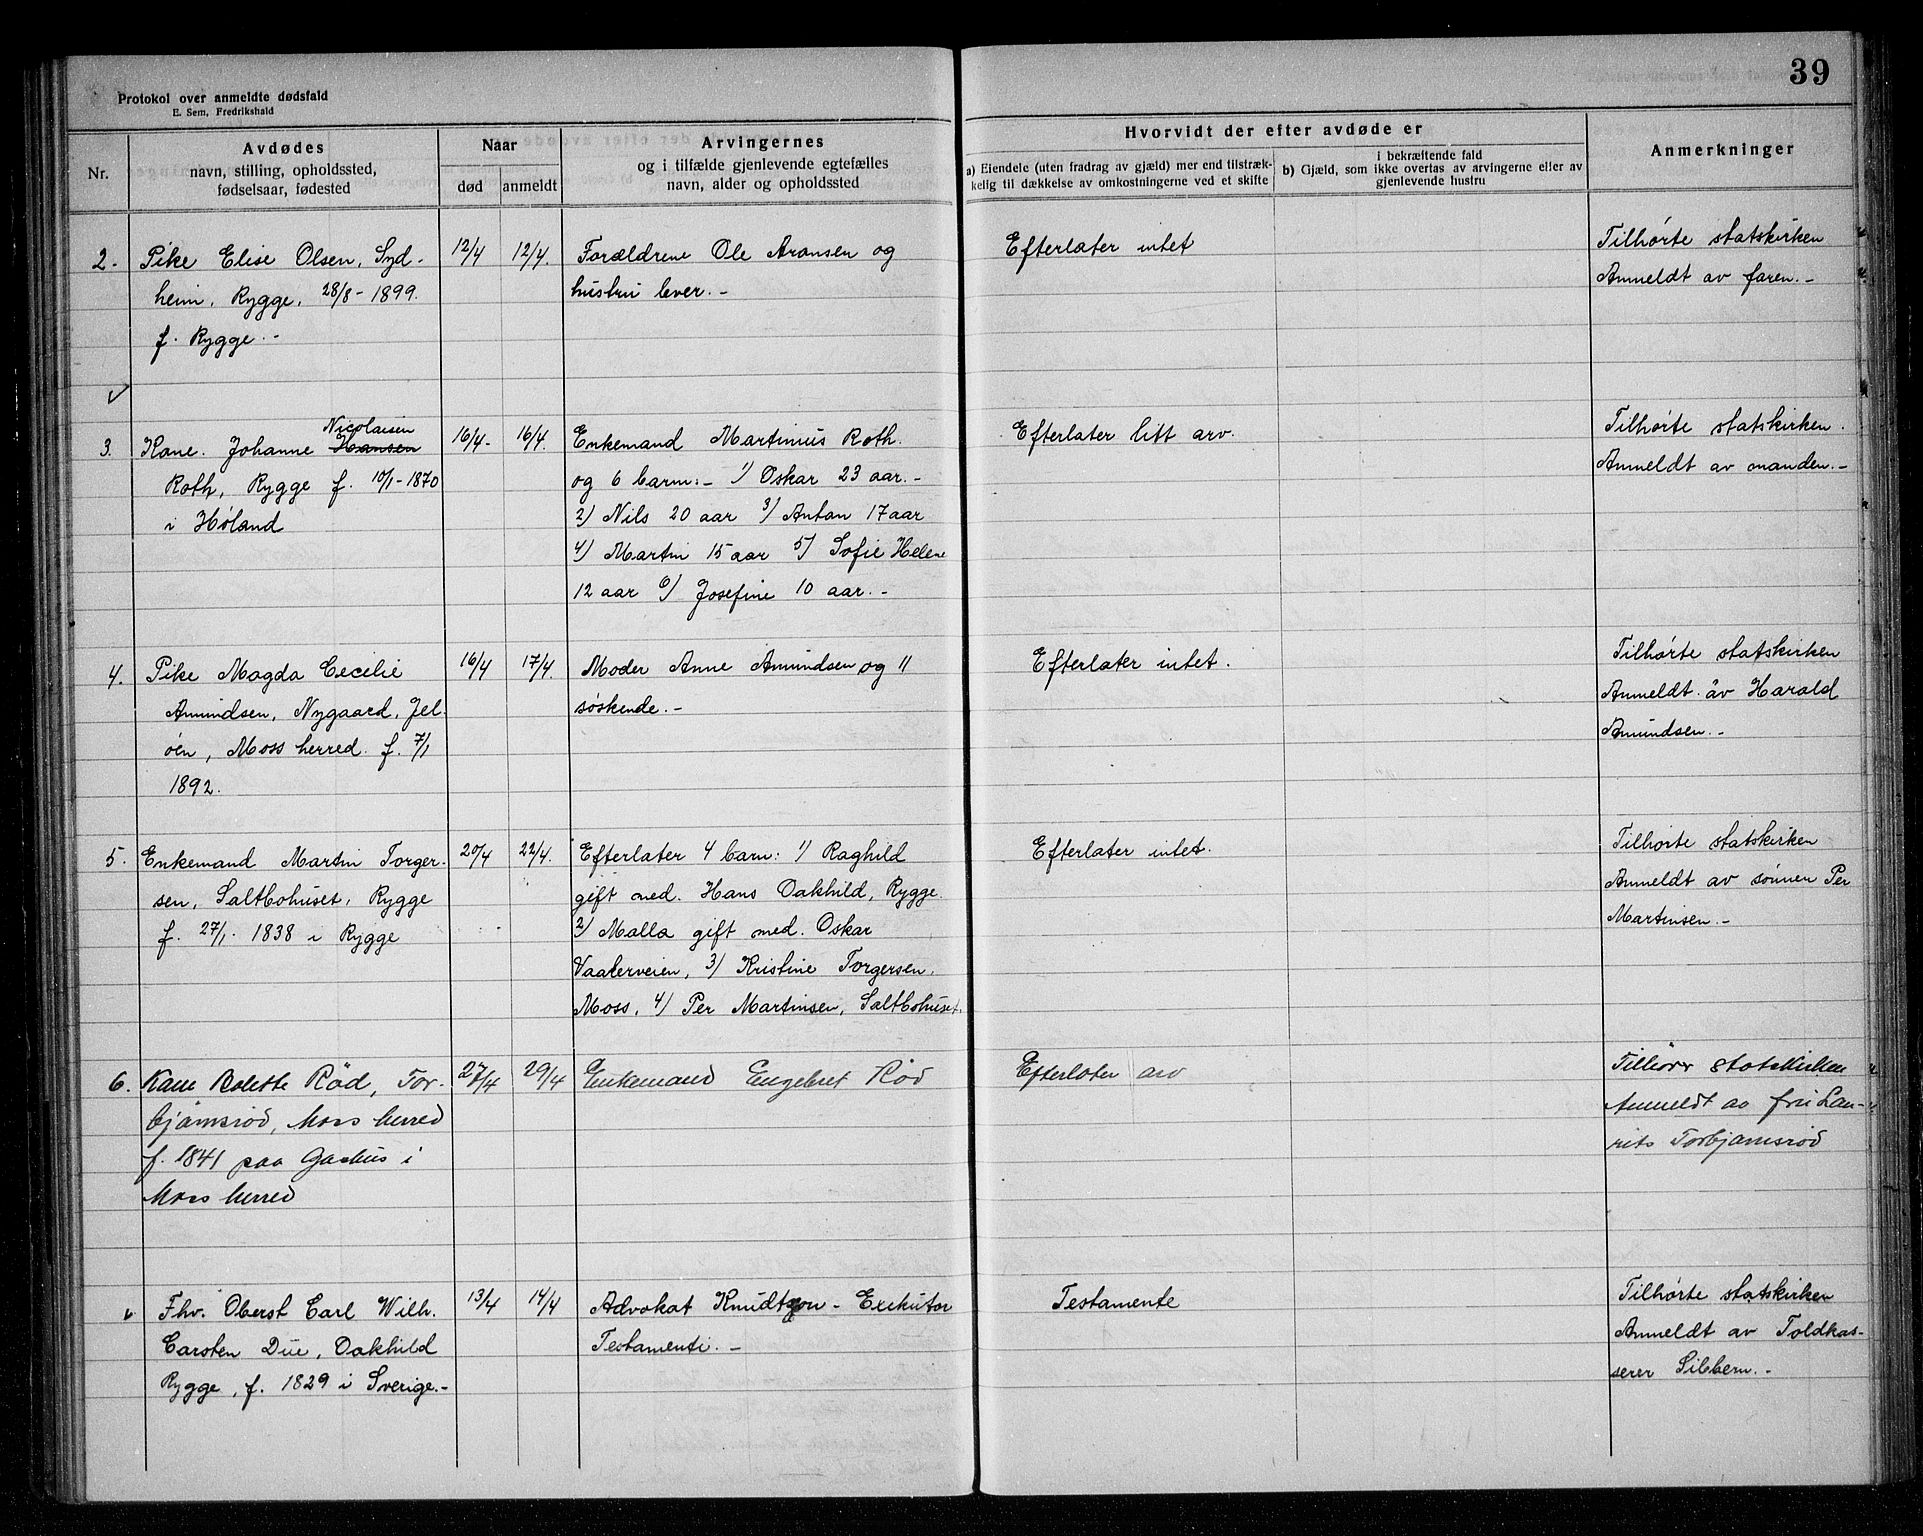 39
Protokol over anmeldte dødsfald
E. Sem, Fredrikshald
Nr.
Avdødes
navn, stilling, opholdssted,
fødselsaar, fødested
Naar
død
anmeldt
Arvingernes
og i tilfælde gjenlevende egtefælles
navn, alder og opholdssted
Hvorvidt der efter avdøde er
a) Eiendele (uten fradrag av gjæld) mer end tilstræk-
kelig til dækkelse av omkostningerne ved et skifte
i bekræftende fald
b) Gjæld, som ikke overtas av arvingerne eller av
gjenlevende hustru
Anmerkninger
2.
Pike Elise Olsen, Syd-
heim, Rygge, 28/8 - 1899.
f. Rygge. -
12/4
12/4.
Forældrene Ole Aronsen og
hustru lever. -
Efterlater intet
Tilhørte statskirken
Anmeldt av faren. -
3.
Nicolaisen
Kone. Johanne Hansen
Roth, Rygge f. 10/1 - 1870
i Høland
16/4 -
16/4.
Enkemand Martinius Roth.
og 6 barn: - 1) Oskar 23 aar. -
2) Nils 20 aar 3) Anton 17 aar
4) Martin 15 aar 5) Sofie Helene
12 aar 6) Josefine 10 aar. -
Efterlater litt arv.
Tilhørte statskirken.
Anmeldt av manden. -
4.
Pike Magda Cecilie
Amundsen, Nygaard, Jel-
øen, Moss herred. f. 7/1
1892.
16/4
17/4.
Moder Anne Amundsen og 11
søskende. -
Efterlater intet.
Tilhørte statskirken
Anmeldt av Harald
Amundsen. -
5.
Enkemand Martin Torger-
sen, Saltbohuset, Rygge
f. 27/1. 1838 i Rygge
20/4
22/4.
Efterlater 4 barn: 1) Raghild
gift med. Hans Oakhild, Rygge.
2) Malla gift med. Oskar
Vaalerveien, 3) Kristine Torgersen.
Moss, 4) Per Martinsen, Saltbohuset.
Efterlater intet.
Tilhørte statskirken
Anmeldt av sønnen Per
Martinsen. -
6.
Kone Bolette Rød, Tor-
bjørnsrød, Moss herred
f. 1841 paa Gashus i
Moss herred
27/4
29/4
Enkemand Engebret Rød
Efterlater arv
Tilhører statskirken
Anmeldt av fru Lau-
rits Torbjørnsrød
Fhv. Oberst Carl Wilh.
Carsten Due, Oakhild
Rygge, f. 1829 i Sverige. -
13/4
14/4
Advokat Knudtzon - Exekutor
Testamenti. -
Testamente
Tilhørte statskirken
Anmeldt av Toldkas-
serer Sibbern. -